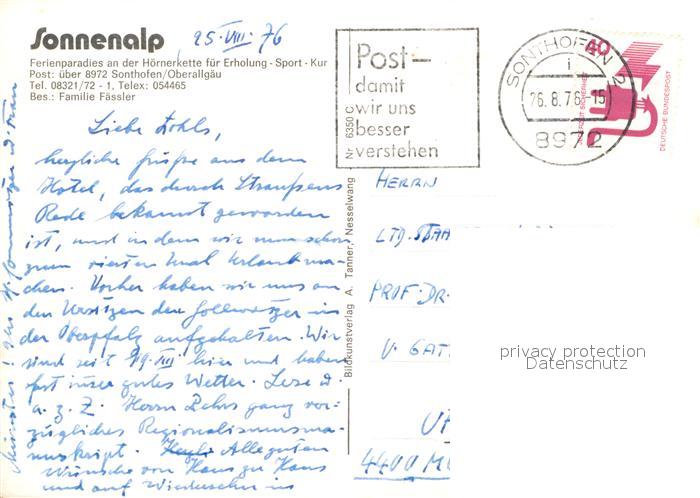 Sonnenalp
25. VIII. 76
Ferienparadies an der Hörnerkette für Erholung - Sport - Kur
Post: über 8972 Sonthofen/Oberallgäu
Tel. 08321/72 - 1, Telex: 054465
Bes.: Familie Fässler
Liebe
herzliche Grüße aus dem
Hotel, das durch Straußens
Rede bekannt geworden
ist, und in dem wir nun schon
zum vierten Mal Urlaub ma-
chen. Vorher haben wir uns an
den Ursitzen der Zollwitzer in
der Oberpfalz aufgehalten. Wir
sind seit 19. VIII. hier und haben
fast immer gutes Wetter. Lese d.
a. z. Z. Herrn ganz vor-
zügliches Regionalismusma-
nuskript. Alle guten
Wünsche von Haus zu Haus
und auf Wiedersehn in
Münster!
Nr. 6350 C
Bildkunstverlag A. Tanner, Nesselwang
Post-
damit
wir uns
besser
verstehen
SONTHOFEN 2
i
26.8.76-15
8972
40
JEDERZEIT SICHERHEIT
DEUTSCHE BUNDESPOST
HERRN
LTD. STAA
PROF. DR.
V. GATT
4400 MÜ
privacy protection
Datenschutz